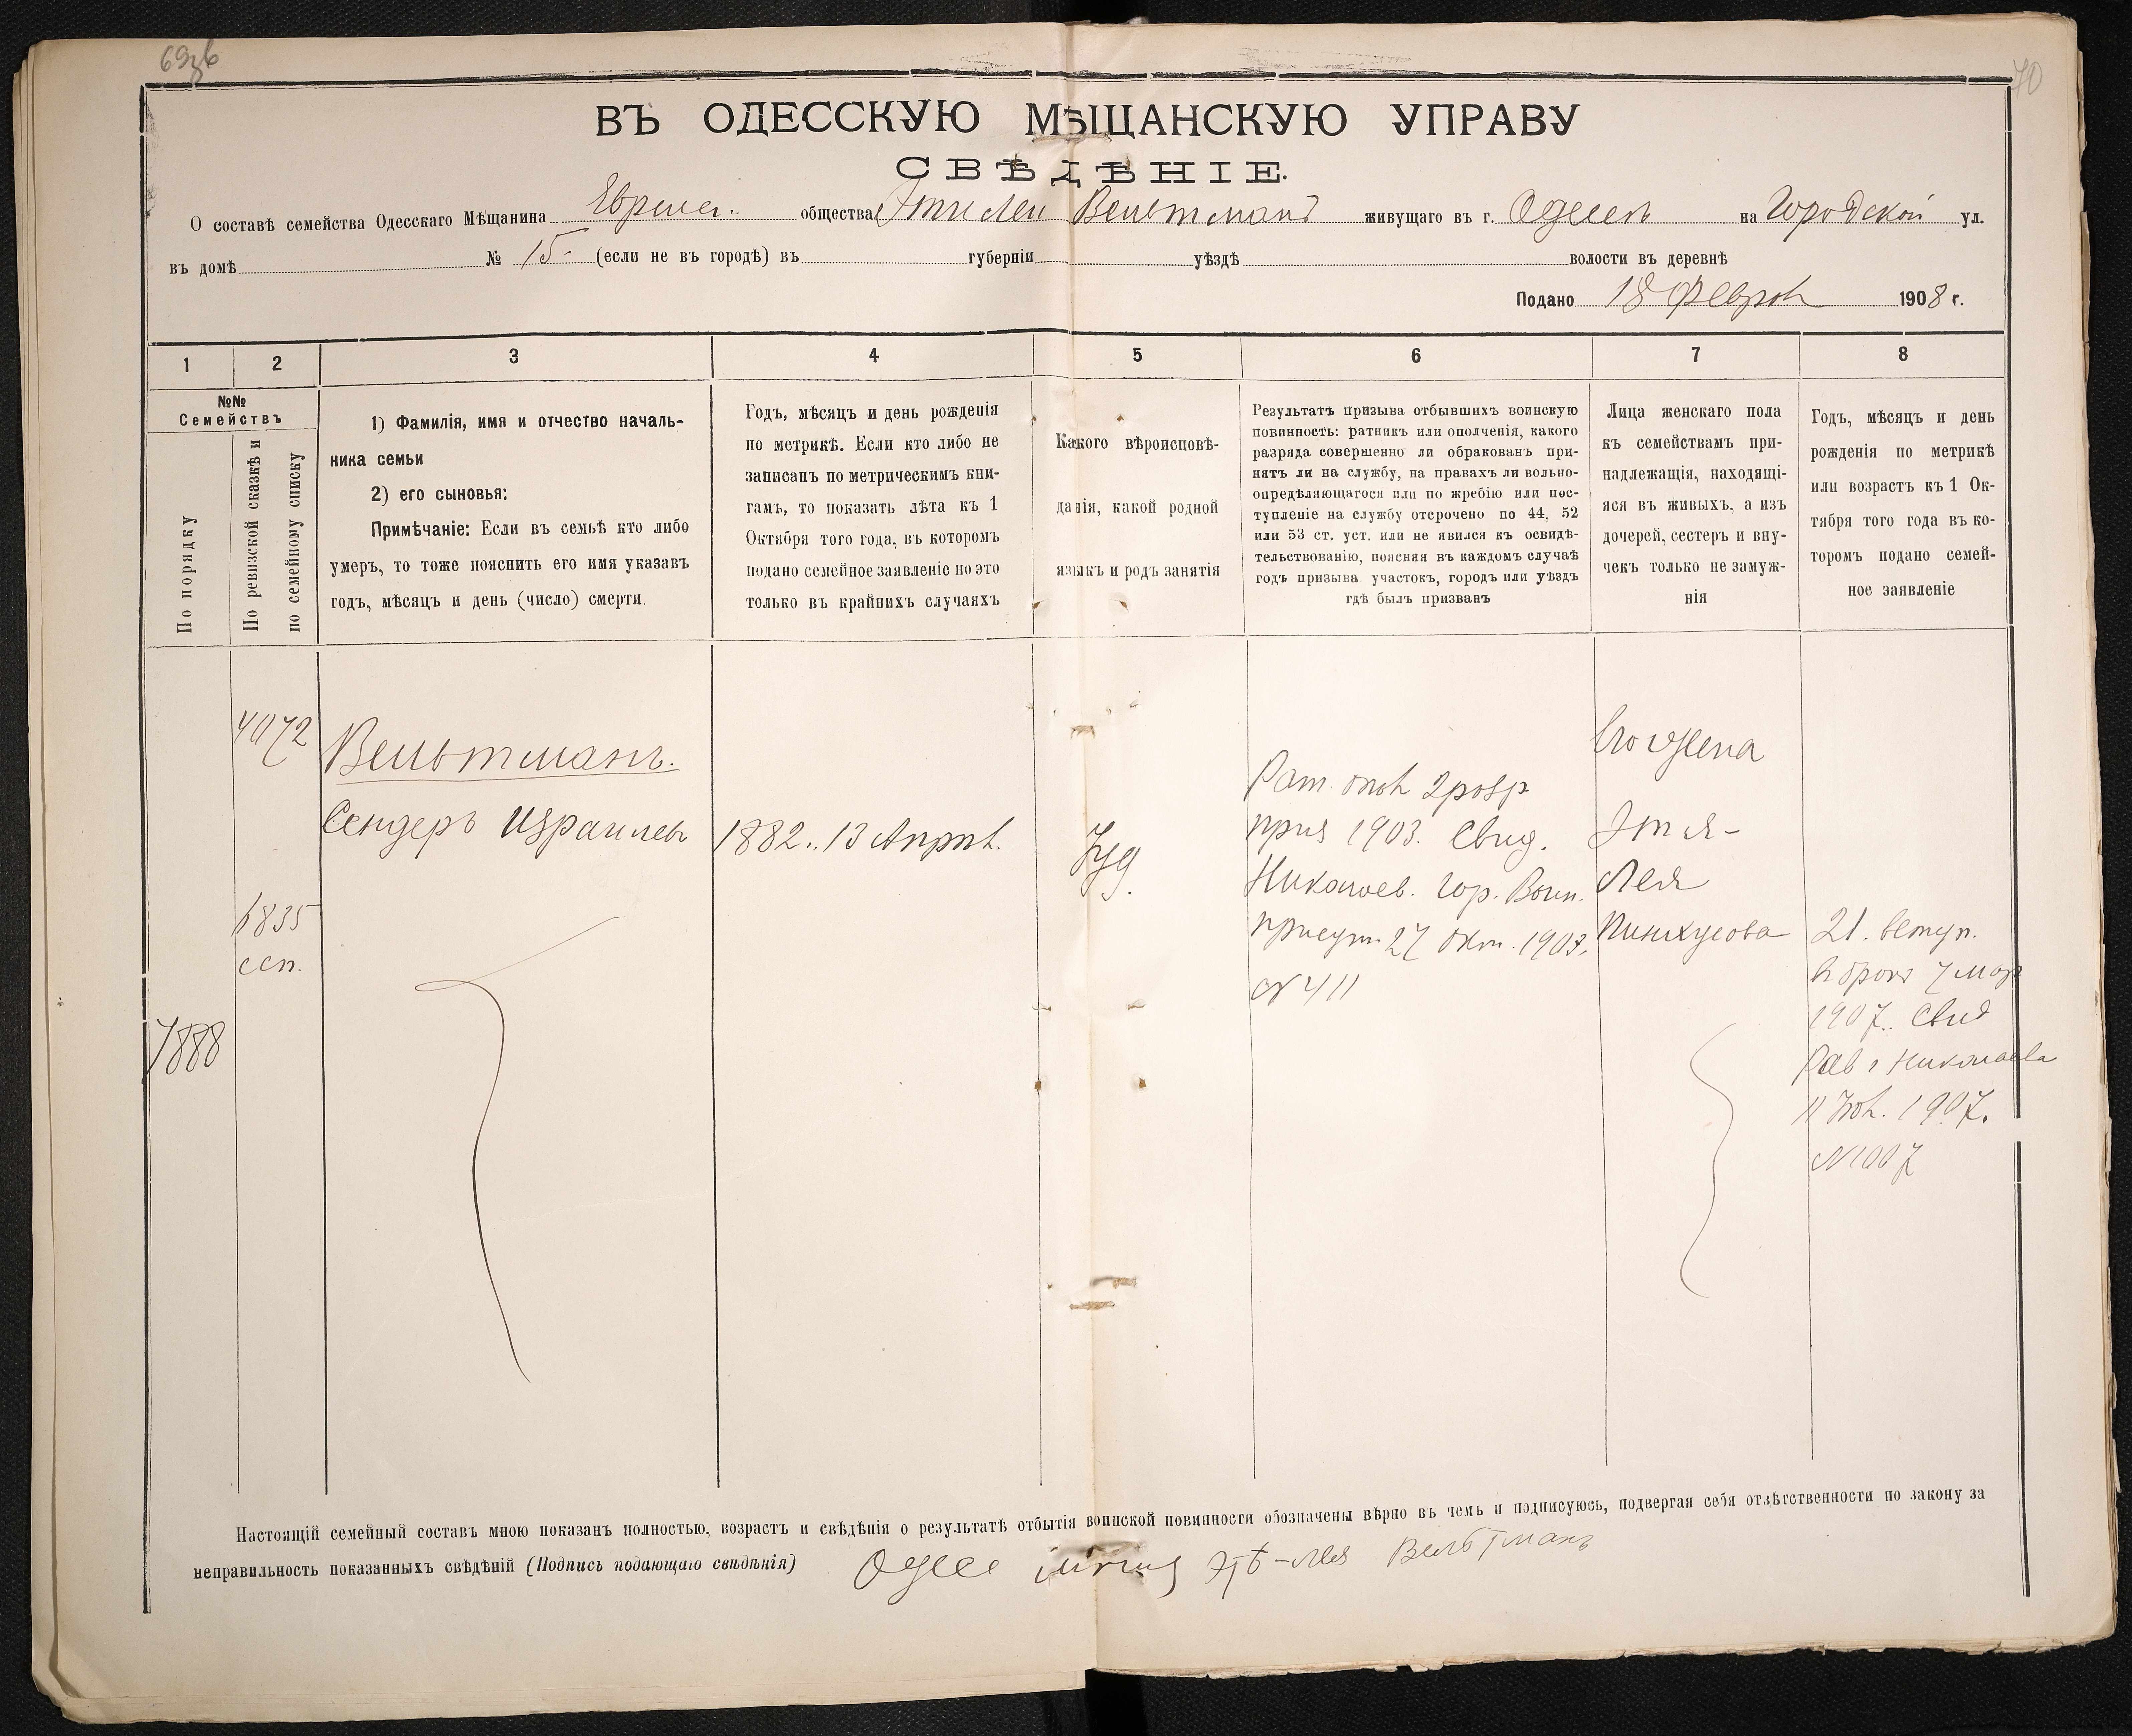 70
ВЪ ОДЕССКУЮ МѢЩАНСКУЮ УПРАВУ
СВѢДѢНІЕ.
О составѣ семейства Одесскаго Мѣщанина Еврейск. общества Эти Леи Вельтманъ живущаго въ г. Одессѣ на Городской ул.
въ домѣ № 15 (если не въ городѣ) въ губерніи уѣздѣ волости въ деревнѣ
Подано 18 Февраля 1908 г.
1 2 3 4 5 6 7 8
№№
Семействъ
По порядку
По ревизской сказкѣ и
по семейному списку
1) Фамилія, имя и отчество началь-
ника семьи
2) его сыновья:
Примѣчаніе: Если въ семьѣ кто либо
умеръ, то тоже пояснить его имя указавъ
годъ, мѣсяцъ и день (число) смерти.
Годъ, мѣсяцъ и день рожденія
по метрикѣ. Если кто либо не
записанъ по метрическимъ кни-
гамъ, то показать лѣта къ 1
Октября того года, въ которомъ
подано семейное заявленіе но это
только въ крайнихъ случаяхъ
Какого вѣроисповѣ-
данія, какой родной
языкъ и родъ занятія
Результатъ призыва отбывшихъ воинскую
повинность: ратникъ или ополченія, какого
разряда совершенно ли обракованъ при-
нятъ ли на службу, на правахъ ли вольно-
опредѣляющагося или по жребію или пос-
тупленіе на службу отсрочено по 44, 52
или 53 ст. уст. или не явился къ освидѣ-
тельствованію, поясняя въ каждомъ случаѣ
годъ призыва участокъ, городъ или уѣздъ
гдѣ былъ призванъ
Лица женскаго пола
къ семействамъ при-
надлежащія, находящі-
яся въ живыхъ, а изъ
дочерей, сестеръ и вну-
чекъ только не замуж-
нія
Годъ, мѣсяцъ и день
рожденія по метрикѣ
или возрастъ къ 1 Ок-
тября того года въ ко-
торомъ подано семей-
ное заявленіе
7888
4072
6835
ссп.
Вельтманъ.
Сендеръ Израилев
1882. 13 Апрѣл.
Іуд.
Рат. опол 2 разр
приз 1903. Свид.
Николаев. Гор. Воин.
присут. 27 Окт. 1903.
№ 411
Его жена
Этя-
Лея
Пинхусова
21. вступ.
в бракъ 7 мар
1907. Свид
Рав г Николаева
11 Іюл. 1907.
№ 1007
Настоящій семейный составъ мною показанъ полностью, возрастъ и свѣдѣнія о результатѣ отбытія воинской повинности обозначены вѣрно въ чемъ и подписуюсь, подвергая себя отвѣтственности по закону за
неправильность показанныхъ свѣдѣній (Подпись подающаго свѣдѣнія) Этѣ-Лея Вельтманъ